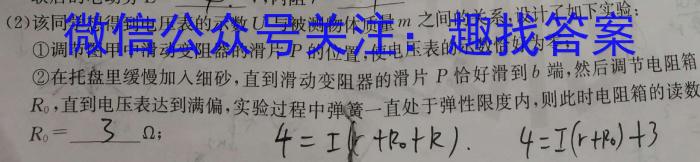 (2)该同学想得到电压表的示数U与被测物体质量m之间的关系,设计了如下实验:
微信公众号关注:趣找答案
①调节图甲中滑动变阻器的滑片P的位置,使电压表的示数恰好为
②在托盘里缓慢加入细砂,直到滑动变阻器的滑片P恰好滑到b端,然后调节电阻箱
R₀,直到电压表达到满偏,实验过程中弹簧一直处于弹性限度内,则此时电阻箱的读数
R₀=3Ω; 4=I(r+R₀+R). 4=I(r+R₀)+3